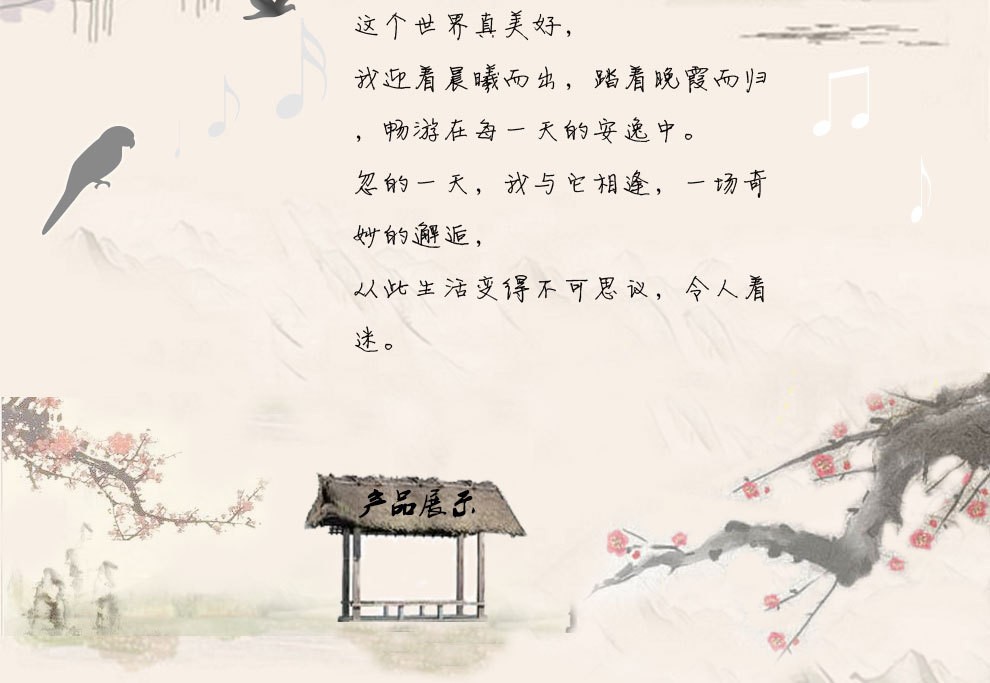 这个世界真美好，
我迎着晨曦而出，踏着晚霞而归
，畅游在每一天的安逸中。
忽的一天，我与它相逢，一场奇
妙的邂逅，
从此生活变得不可思议，令人着
迷。
产品展示